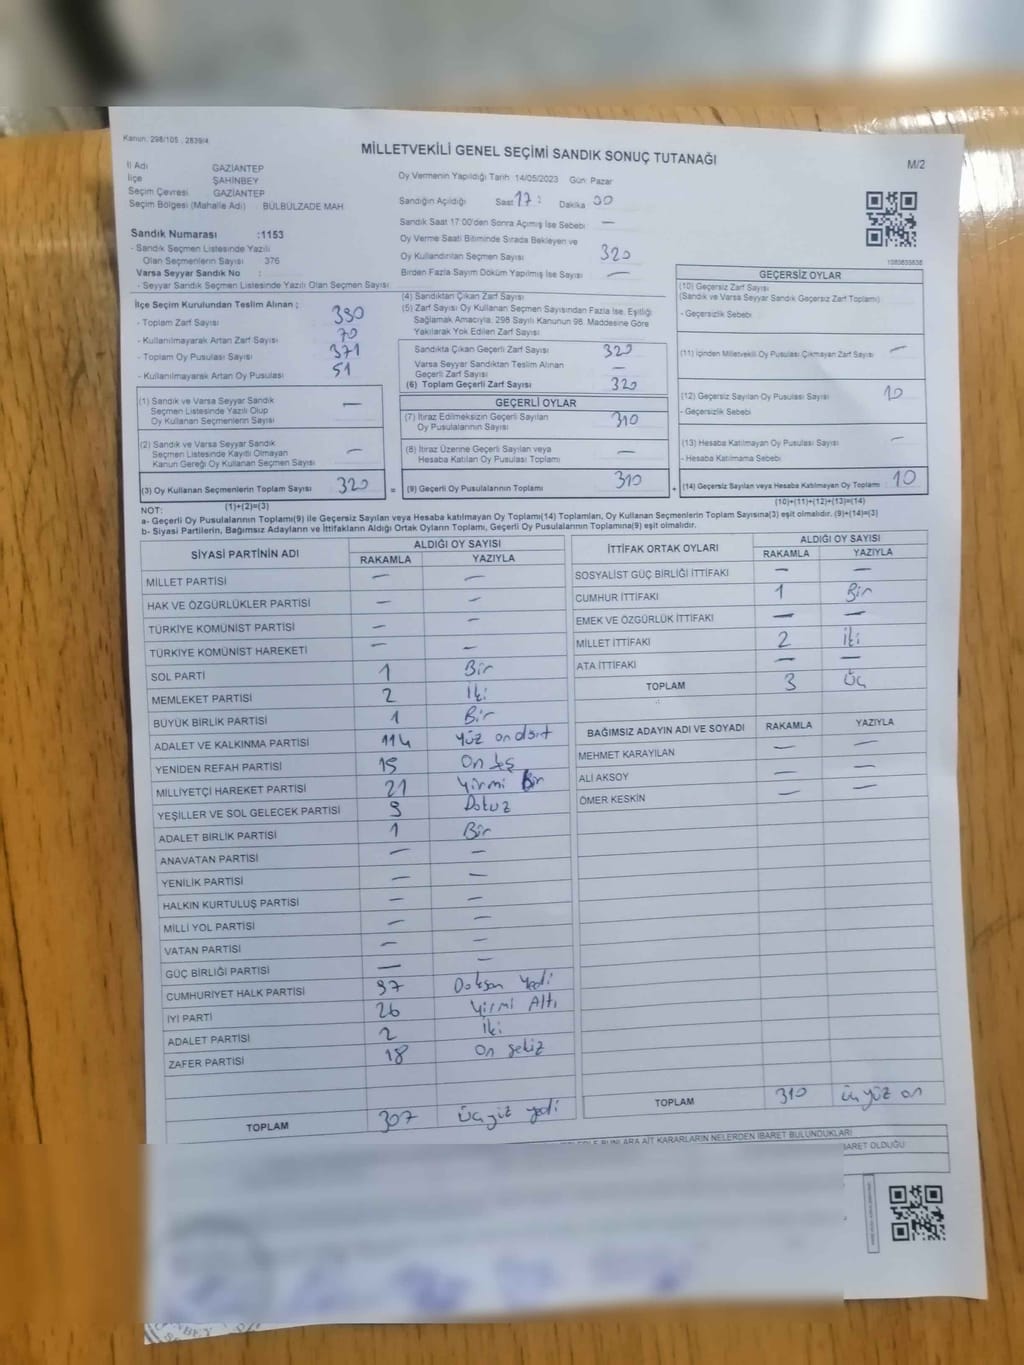 Kanun: 298/105 , 2839/4
MİLLETVEKİLİ GENEL SEÇİMİ SANDIK SONUÇ TUTANAĞI
M/2
İl Adı GAZİANTEP
İlçe ŞAHİNBEY
Seçim Çevresi GAZİANTEP
Seçim Bölgesi (Mahalle Adı) BÜLBÜLZADE MAH.
Oy Vermenin Yapıldığı Tarih 14/05/2023 Gün: Pazar
Sandığın Açıldığı Saat 17: Dakika 00
Sandık Saat 17:00'den Sonra Açılmış İse Sebebi —
Oy Verme Saati Bitiminde Sırada Bekleyen ve
Oy Kullandırılan Seçmen Sayısı 320
Birden Fazla Sayım Döküm Yapılmış İse Sayısı —
Sandık Numarası :1153
- Sandık Seçmen Listesinde Yazılı
Olan Seçmenlerin Sayısı 376
Varsa Seyyar Sandık No :
- Seyyar Sandık Seçmen Listesinde Yazılı Olan Seçmen Sayısı
1083833838
İlçe Seçim Kurulundan Teslim Alınan ;
- Toplam Zarf Sayısı 390
- Kullanılmayarak Artan Zarf Sayısı 70
- Toplam Oy Pusulası Sayısı 371
- Kullanılmayarak Artan Oy Pusulası 51
(1) Sandık ve Varsa Seyyar Sandık
Seçmen Listesinde Yazılı Olup
Oy Kullanan Seçmenlerin Sayısı —
(2) Sandık ve Varsa Seyyar Sandık
Seçmen Listesinde Kayıtlı Olmayan
Kanun Gereği Oy Kullanan Seçmen Sayısı —
(3) Oy Kullanan Seçmenlerin Toplam Sayısı 320 =
(1)+(2)=(3)
(4) Sandıktan Çıkan Zarf Sayısı
(5) Zarf Sayısı Oy Kullanan Seçmen Sayısından Fazla İse, Eşitliği
Sağlamak Amacıyla, 298 Sayılı Kanunun 98. Maddesine Göre
Yakılarak Yok Edilen Zarf Sayısı
Sandıkta Çıkan Geçerli Zarf Sayısı 320
Varsa Seyyar Sandıktan Teslim Alınan
Geçerli Zarf Sayısı —
(6) Toplam Geçerli Zarf Sayısı 320
GEÇERLİ OYLAR
(7) İtiraz Edilmeksizin Geçerli Sayılan
Oy Pusulalarının Sayısı 310
(8) İtiraz Üzerine Geçerli Sayılan veya
Hesaba Katılan Oy Pusulası Toplamı —
(9) Geçerli Oy Pusulalarının Toplamı 310 +
GEÇERSİZ OYLAR
(10) Geçersiz Zarf Sayısı
(Sandık ve Varsa Seyyar Sandık Geçersiz Zarf Toplamı)
- Geçersizlik Sebebi
(11) İçinden Milletvekili Oy Pusulası Çıkmayan Zarf Sayısı —
(12) Geçersiz Sayılan Oy Pusulası Sayısı 10
- Geçersizlik Sebebi
(13) Hesaba Katılmayan Oy Pusulası Sayısı —
- Hesaba Katılmama Sebebi
(14) Geçersiz Sayılan veya Hesaba Katılmayan Oy Toplamı 10
(10)+(11)+(12)+(13)=(14)
NOT:
a- Geçerli Oy Pusulalarının Toplamı(9) ile Geçersiz Sayılan veya Hesaba katılmayan Oy Toplamı(14) Toplamları, Oy Kullanan Seçmenlerin Toplam Sayısına(3) eşit olmalıdır. (9)+(14)=(3)
b- Siyasi Partilerin, Bağımsız Adayların ve İttifakların Aldığı Ortak Oyların Toplamı, Geçerli Oy Pusulalarının Toplamına(9) eşit olmalıdır.
SİYASİ PARTİNİN ADI ALDIĞI OY SAYISI
RAKAMLA YAZIYLA
MİLLET PARTİSİ — —
HAK VE ÖZGÜRLÜKLER PARTİSİ — —
TÜRKİYE KOMÜNİST PARTİSİ — —
TÜRKİYE KOMÜNİST HAREKETİ — —
SOL PARTİ 1 Bir
MEMLEKET PARTİSİ 2 İki
BÜYÜK BİRLİK PARTİSİ 1 Bir
ADALET VE KALKINMA PARTİSİ 114 Yüz ondört
YENİDEN REFAH PARTİSİ 15 On beş
MİLLİYETÇİ HAREKET PARTİSİ 21 Yirmi Bir
YEŞİLLER VE SOL GELECEK PARTİSİ 9 Dokuz
ADALET BİRLİK PARTİSİ 1 Bir
ANAVATAN PARTİSİ — —
YENİLİK PARTİSİ — —
HALKIN KURTULUŞ PARTİSİ — —
MİLLİ YOL PARTİSİ — —
VATAN PARTİSİ — —
GÜÇ BİRLİĞİ PARTİSİ — —
CUMHURİYET HALK PARTİSİ 97 Doksan Yedi
İYİ PARTİ 26 Yirmi Altı
ADALET PARTİSİ 2 İki
ZAFER PARTİSİ 18 On sekiz
TOPLAM 307 Üçyüz yedi
İTTİFAK ORTAK OYLARI ALDIĞI OY SAYISI
RAKAMLA YAZIYLA
SOSYALİST GÜÇ BİRLİĞİ İTTİFAKI — —
CUMHUR İTTİFAKI 1 Bir
EMEK VE ÖZGÜRLÜK İTTİFAKI — —
MİLLET İTTİFAKI 2 İki
ATA İTTİFAKI — —
TOPLAM 3 Üç
BAĞIMSIZ ADAYIN ADI VE SOYADI RAKAMLA YAZIYLA
MEHMET KARAYILAN — —
ALİ AKSOY — —
ÖMER KESKİN — —
TOPLAM 310 üçyüz on
BUNLARA AİT KARARLARIN NELERDEN İBARET BULUNDUKLARI
İBARET OLDUĞU